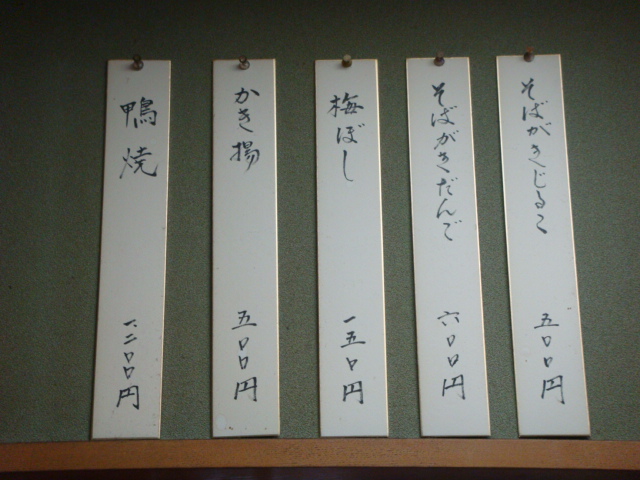 そばがきじるこ
五〇〇円
そばがきだんご
六〇〇円
梅ぼし
一五〇円
かき揚
五〇〇円
鴨焼
一、二〇〇円